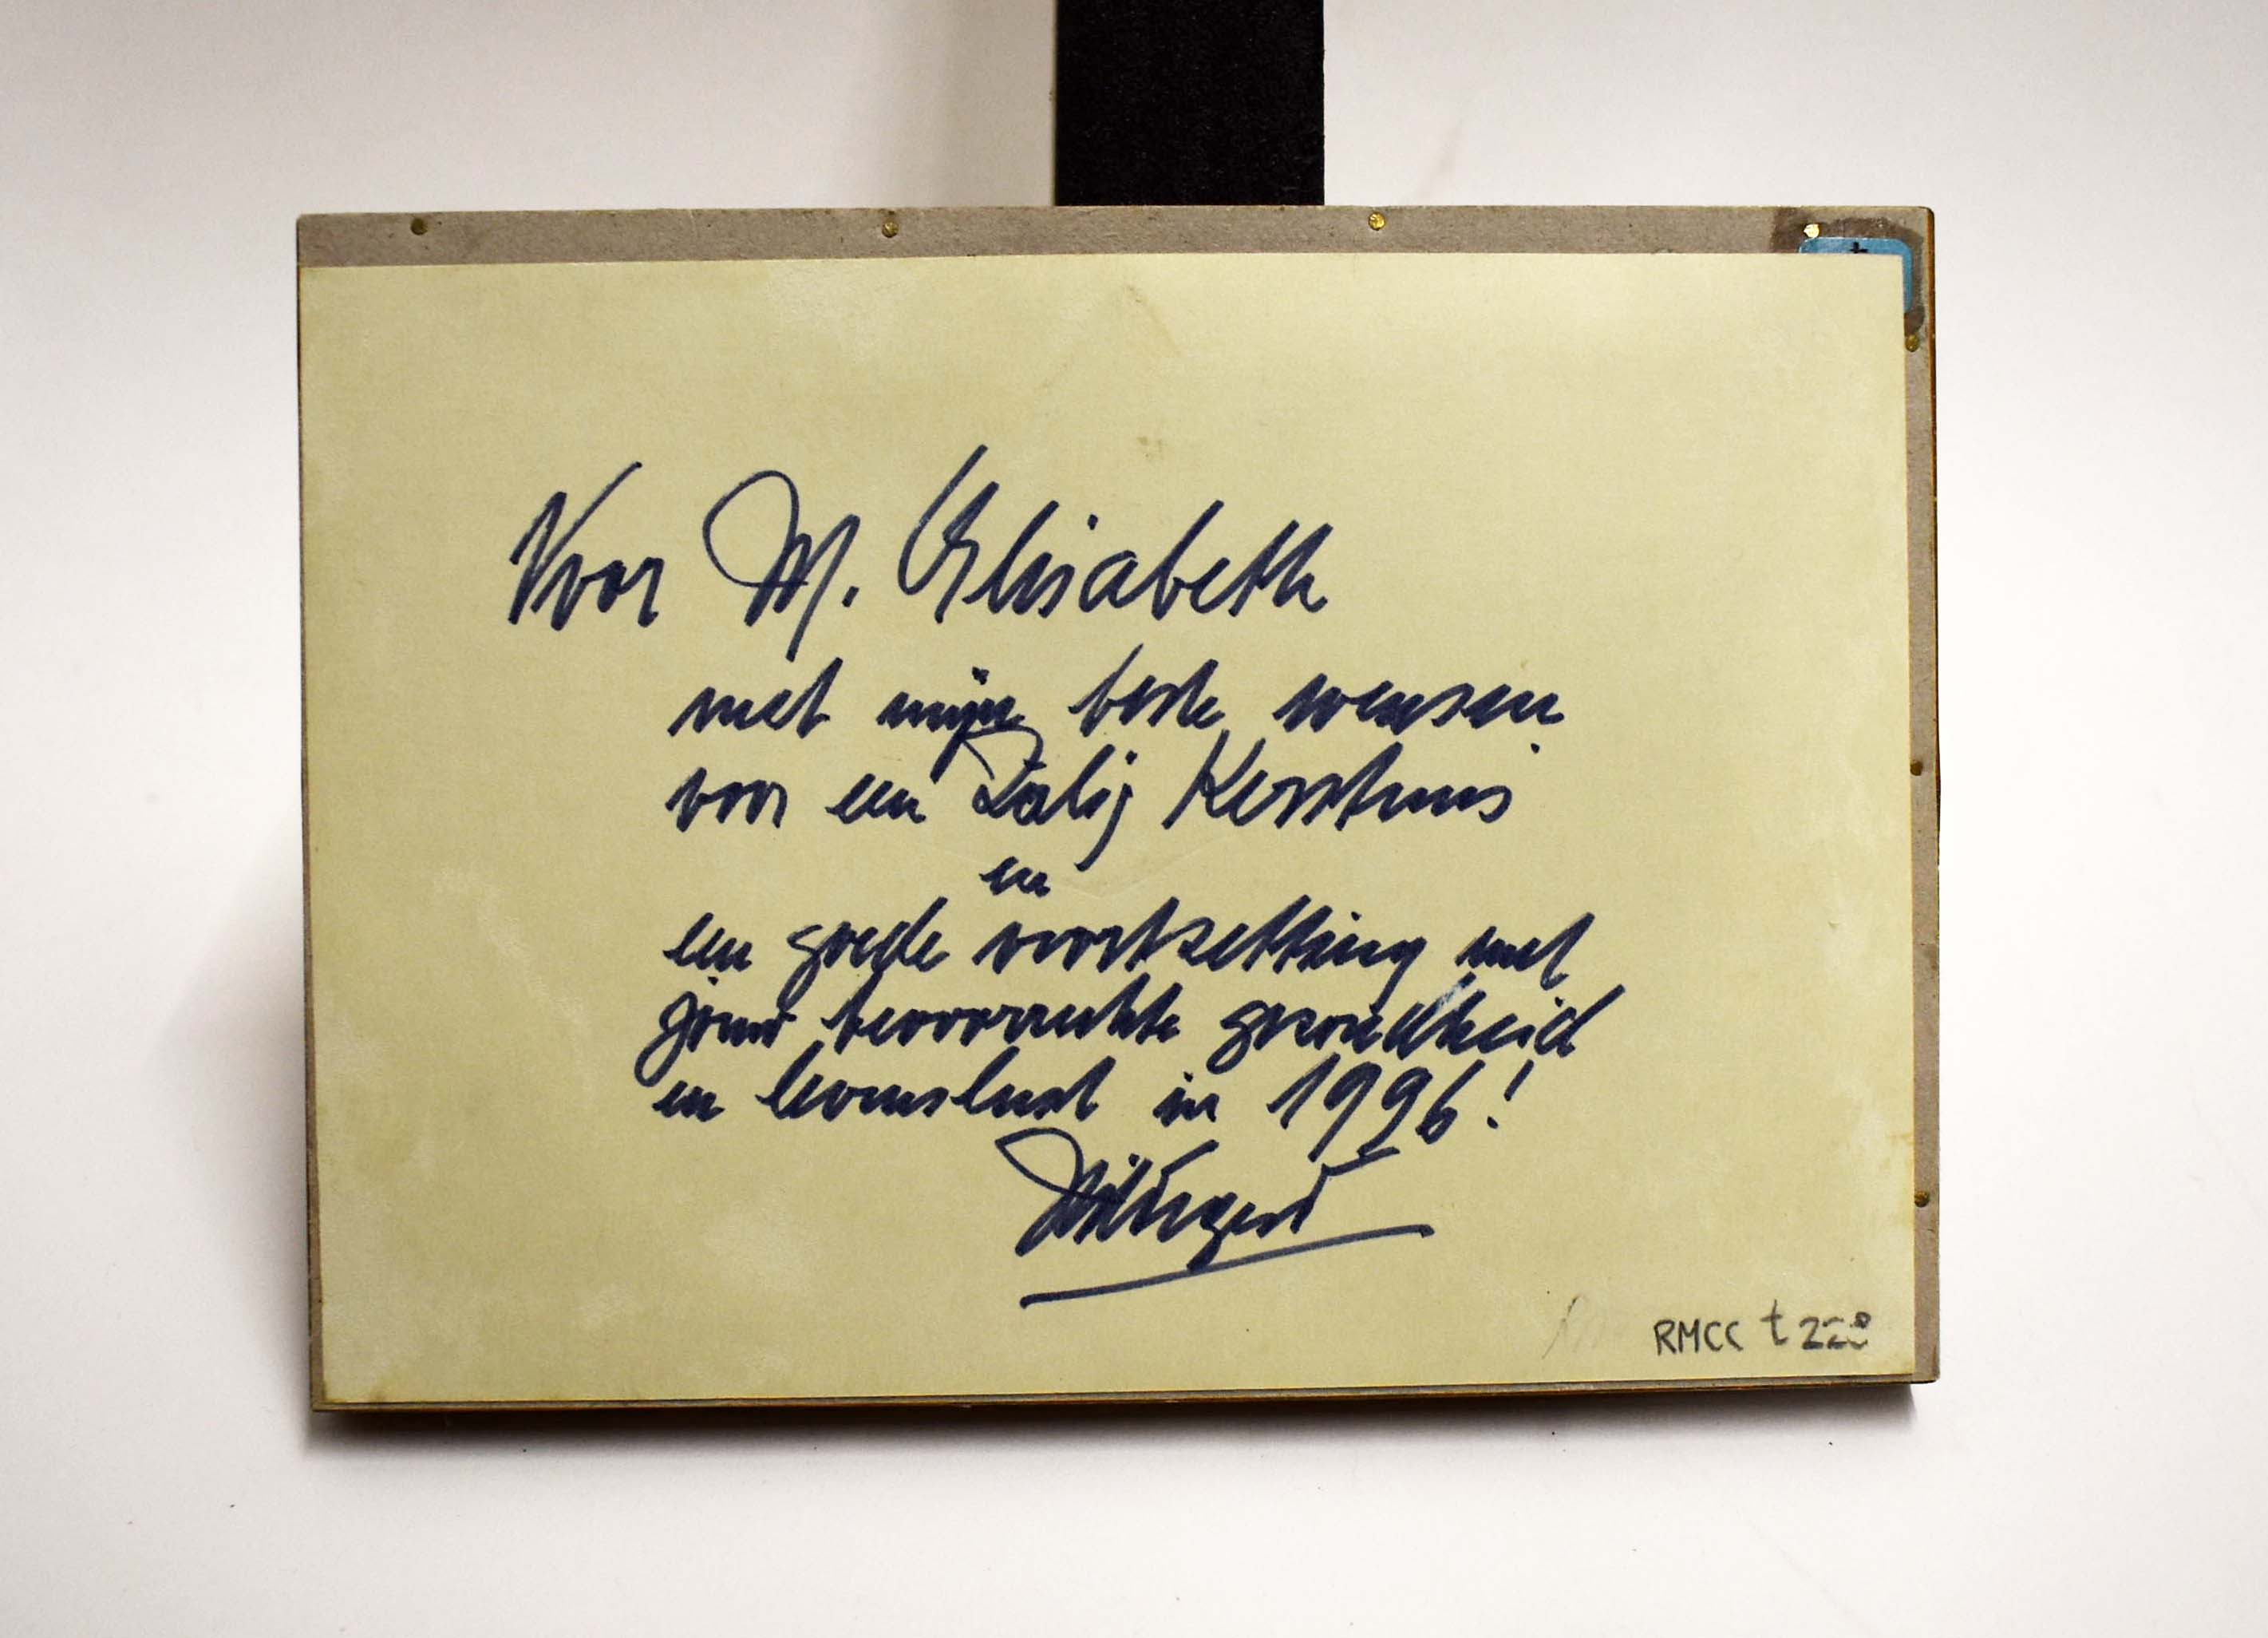 Voor M. Elisabeth
met mijn beste wensen
voor een Zalig Kerstmis
en
een goede voortzetting met
bevoorrechte gezondheid
en levenslust in 1996!
RMCC t 228
t